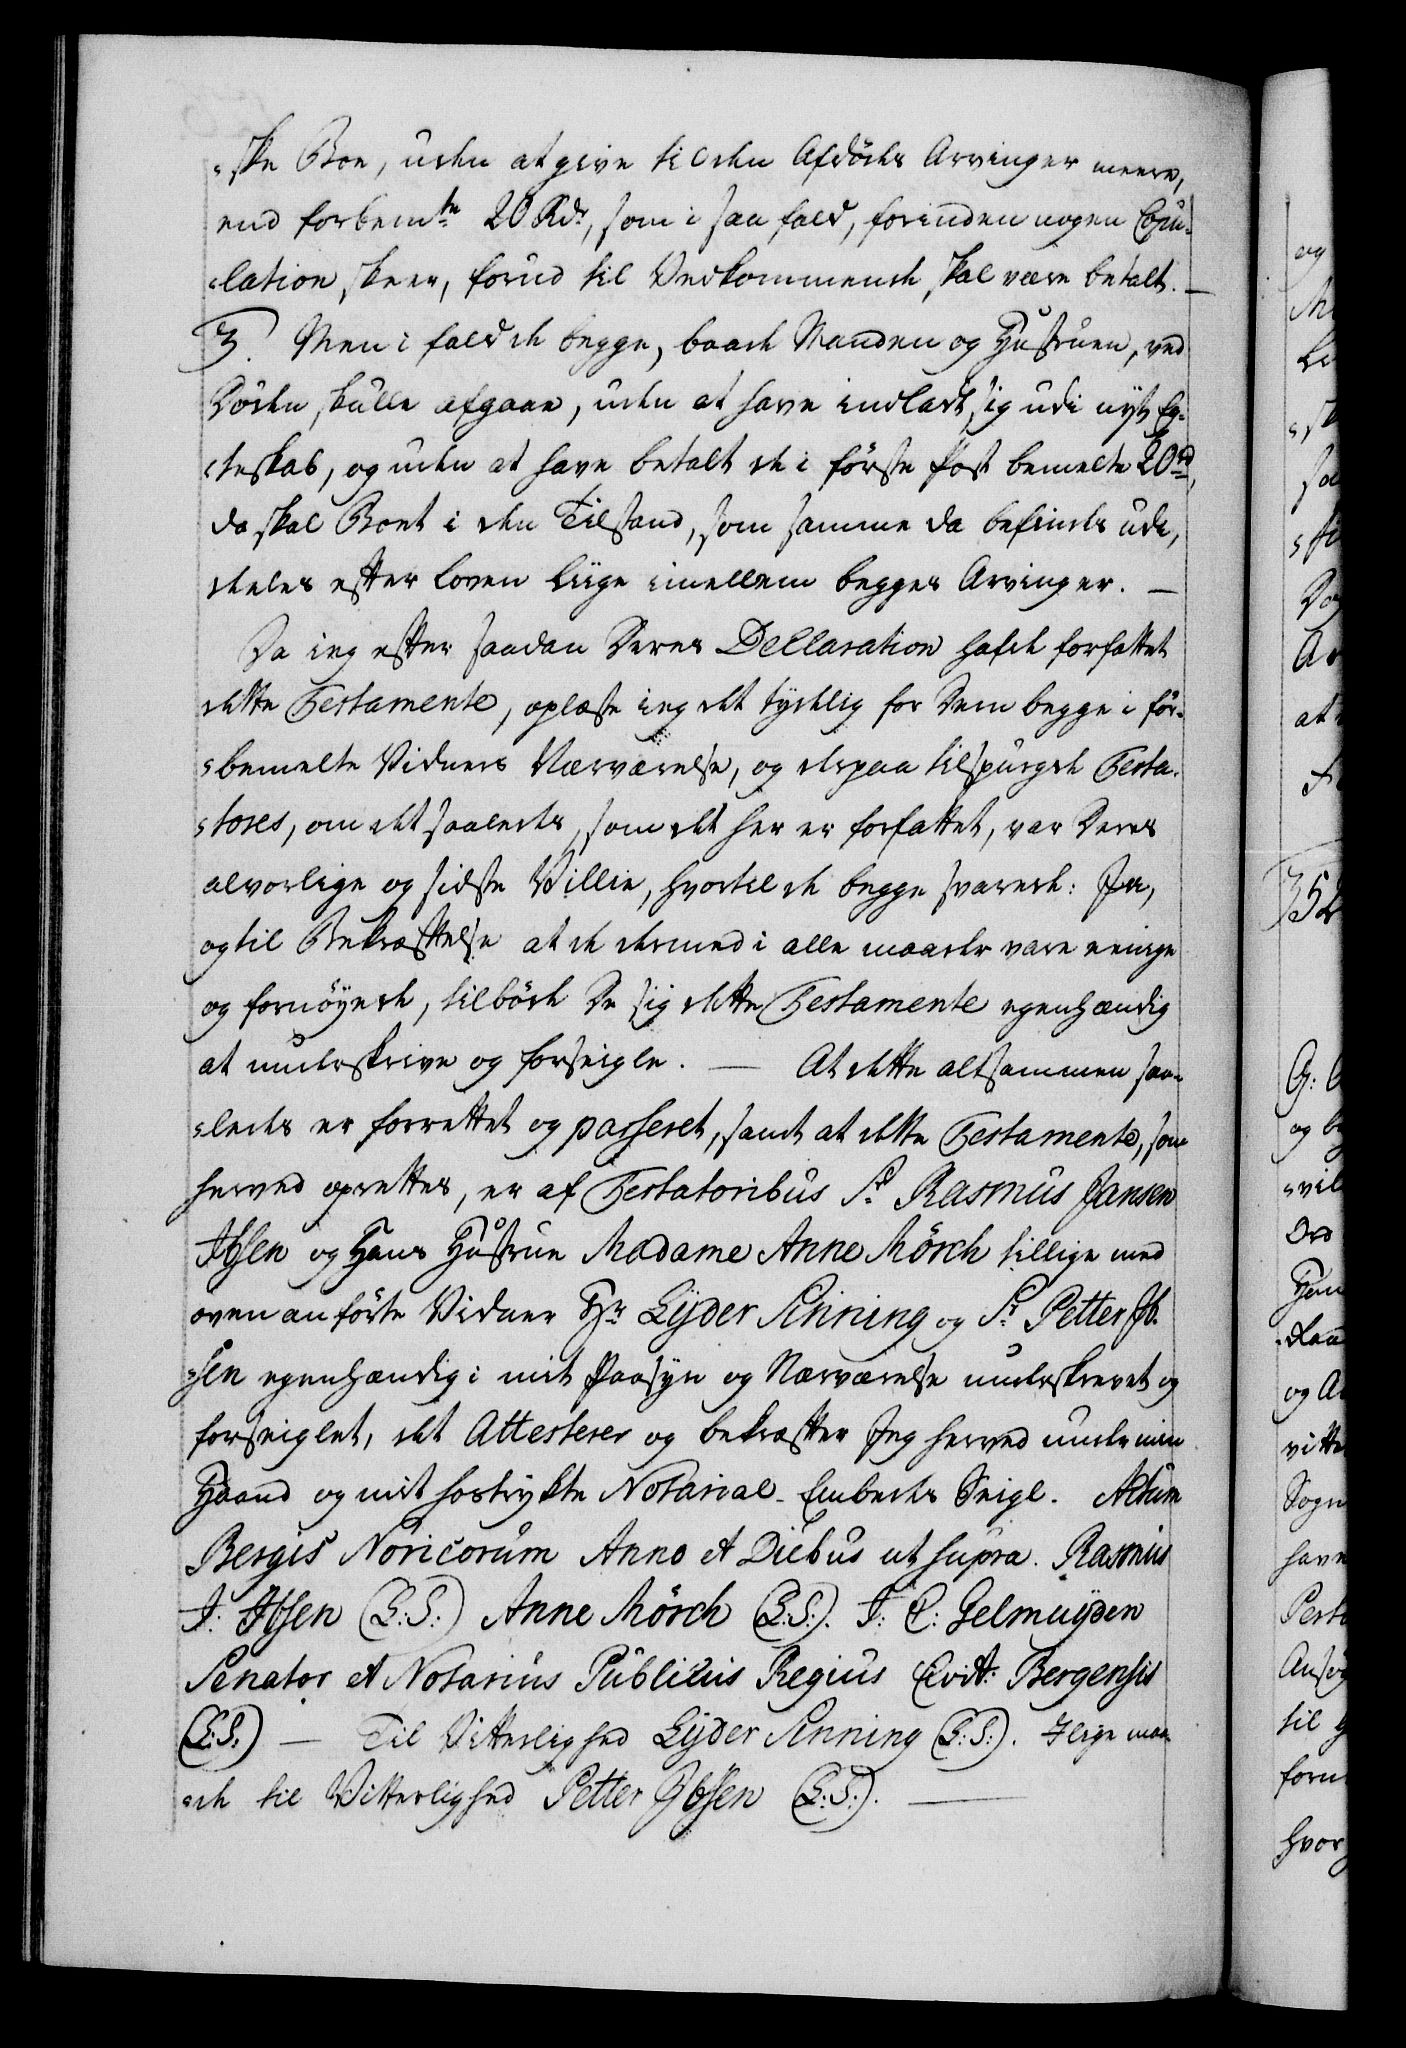 -ske Boe, uden at give til den Afdödes Arvinger meere,
end forbem.te 20 Rdr, som i saa fald, forinden nogen Copu-
-lation skeer, forud til Vedkommende skal være betalt. —
3. Men i fald de begge, baade Manden og Hustruen, ved
Döden skulle afgaae, uden at have indladt sig udi nyt Eg-
-teskab, og uden at have betalt de i förste Post bemelte 20 rd,
da skal Boet i den Tilstand, som samme da befindes udi,
deeles efter Loven liige imellem begges Arvinger. —
Da ieg efter saadan Deres Declaration hafde forfattet
dette Testamente, oplæste ieg det tydelig for Dem begge i for-
-bemelte Vidners Nærværelse, og derpaa tilspurgde Testa-
-tores, om det saaledes, som det her er forfattet, var Deres
alvorlige og sidste Villie, hvortil de begge svarede: Ja,
og til Bekræftelse at de dermed i alle maader vare eenige
og fornöyede, tilböde De sig dette Testamente egenhændig
at underskrive og forseigle. — At dette altsammen saa-
-ledes er forrettet og passeret, samt at dette Testamente, som
herved oprettes, er af Testatoribus Sr. Rasmus Jansen
Ibsen og Hans Hustrue Madame Anne Mörch tillige med
ovenanförte Vidner Hr. Lyder Sinning og Sr. Petter Ib-
-sen egenhændig i mit Paasyn og Nærværelse underskrevet og
forseiglet, det Attesterer og bekræfter Jeg herved under min
Haand og mit hostrykte Notarial-Embedes Seigl. Actum
Bergis Noricorum Anno et Diebus ut supra. Rasmus
J: Ibsen (L:S:) Anne Mörch (L:S:). J: C: Gelmuyden
Senator et Notarius Publicus Regius Civit: Bergensis
(L:S:) — Til Vitterlighed Lyder Sinning (L:S:). Ilige maa-
-de til Vitterlighed Petter Ibsen (L:S:). —